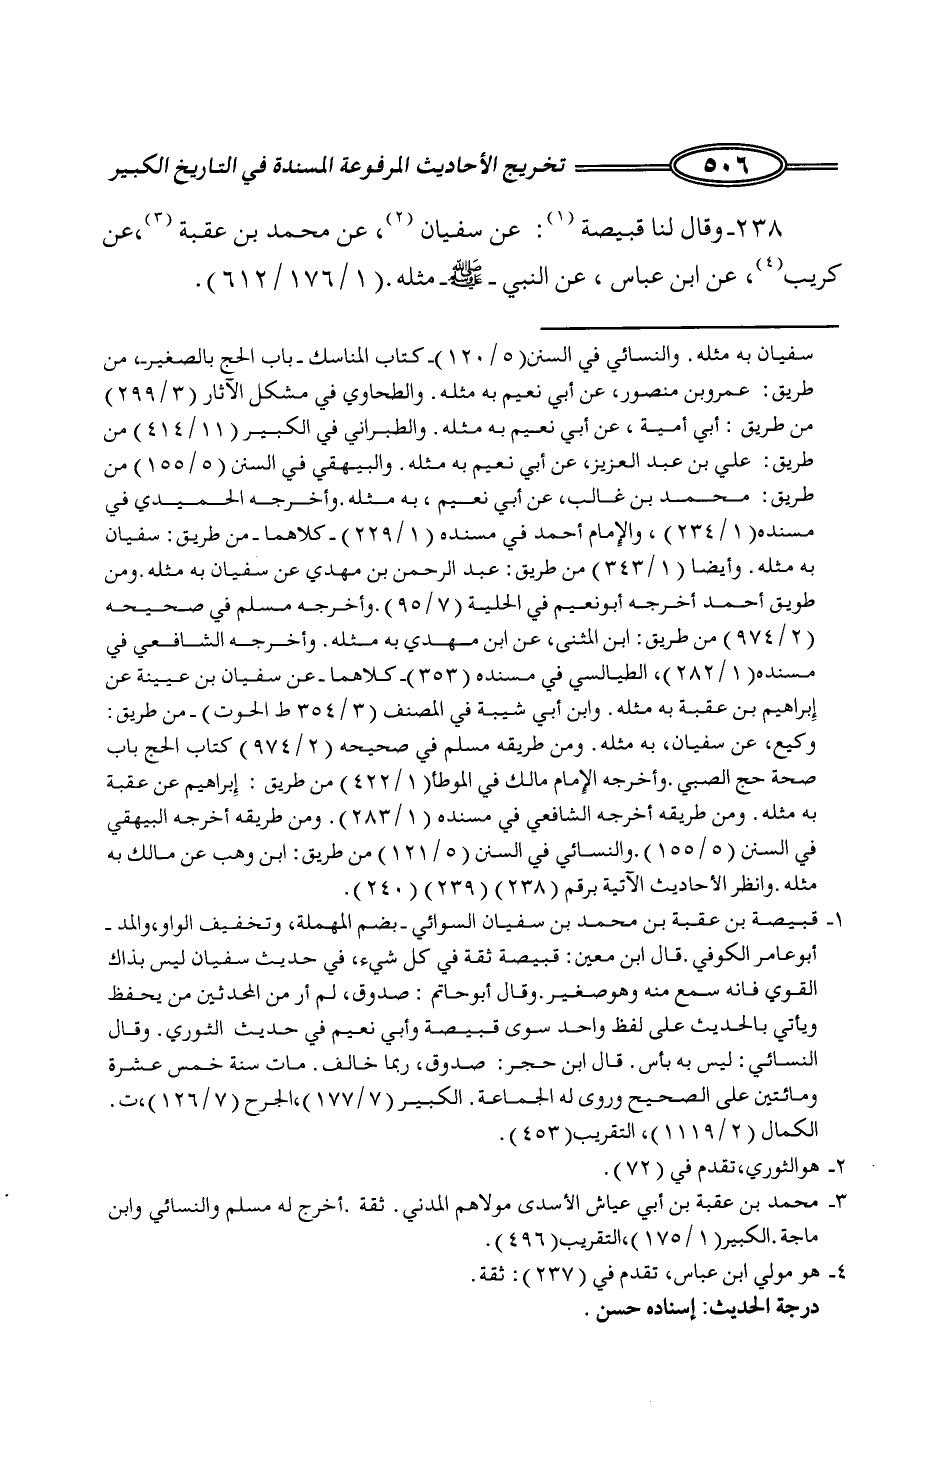 ٥٠٦ تخريج الأحاديث المرفوعة المسندة في التاريخ الكبير
٢٣٨ـ وقال لنا قبيصة (١) : عن سفيان (٢)، عن محمد بن عقبة (٣)،عن
كريب(٤)، عن ابن عباس ، عن النبي ـ ﷺ ـ مثله .( ١ / ١٧٦ / ٦١٢ ) .
سفيان به مثله. والنسائي في السنن( ٥ / ١٢٠ )ـ كتاب المناسك ـ باب الحج بالصغيرـ، من
طريق: عمروبن منصور، عن أبي نعيم به مثله. والطحاوي في مشكل الآثار ( ٣ / ٢٩٩ )
من طريق : أبي أمية ، عن أبي نعيم به مثله. والطبراني في الكبير ( ١١ / ٤١٤ ) من
طريق: علي بن عبد العزيز، عن أبي نعيم به مثله. والبيهقي في السنن ( ٥ / ١٥٥ ) من
طريق: محمد بن غالب، عن أبي نعيم ، به مثله .وأخرجه الحميدي في
مسنده( ١ / ٢٣٤ ) ، والإمام أحمد في مسنده ( ١ / ٢٢٩ ) ـ كلاهما ـ من طريق: سفيان
به مثله. وأيضا ( ١ / ٣٤٣ ) من طريق: عبد الرحمن بن مهدي عن سفيان به مثله .ومن
طويق أحمد أخرجه أبونعيم في الحلية ( ٧ / ٩٥ ) .وأخرجه مسلم في صحيحه
( ٢ / ٩٧٤ ) من طريق: ابن المثنى، عن ابن مهدي به مثله. وأخرجه الشافعي في
مسنده( ١ / ٢٨٢ )، الطيالسي في مسنده ( ٣٥٣ )ـ كلاهما ـ عن سفيان بن عيينة عن
إبراهيم بن عقبة به مثله. وابن أبي شيبة في المصنف ( ٣ / ٣٥٤ ط الحوت ) ـ من طريق:
وكيع، عن سفيان، به مثله. ومن طريقه مسلم في صحيحه ( ٢ / ٩٧٤ ) كتاب الحج باب
صحة حج الصبي .وأخرجه الإمام مالك في الموطأ( ١ / ٤٢٢ ) من طريق : إبراهيم عن عقبة
به مثله. ومن طريقه أخرجه الشافعي في مسنده ( ١ / ٢٨٣ ). ومن طريقه أخرجه البيهقي
في السنن ( ٥ / ١٥٥ ) .والنسائي في السنن ( ٥ / ١٢١ ) من طريق: ابن وهب عن مالك به
مثله .وانظر الأحاديث الآتية برقم ( ٢٣٨ ) ( ٢٣٩ ) ( ٢٤٠ ).
١ـ قبيصة بن عقبة بن محمد بن سفيان السوائي ـ بضم المهملة، وتخفيف الواو،والمد ـ
أبوعامر الكوفي .قال ابن معين: قبيصة ثقة في كل شيء، في حديث سفيان ليس بذاك
القوي فانه سمع منه وهوصغير .وقال أبوحاتم : صدوق، لم أر من المحدثين من يحفظ
ويأتي بالحديث على لفظ واحد سوى قبيصة وأبي نعيم في حديث الثوري. وقال
النسائي: ليس به بأس. قال ابن حجر: صدوق، ربما خالف. مات سنة خمس عشرة
ومائتين على الصحيح وروى له الجماعة. الكبير ( ٧ / ١٧٧ )،الجرح ( ٧ / ١٢٦ )،ت.
الكمال ( ٢ / ١١١٩ )، التقريب( ٤٥٣ ).
٢ـ هوالثوري،تقدم في ( ٧٢ ).
٣ـ محمد بن عقبة بن أبي عياش الأسدى مولاهم المدني. ثقة .أخرج له مسلم والنسائي وابن
ماجة .الكبير( ١ / ١٧٥ )،التقريب( ٤٩٦ ).
٤ـ هو مولي ابن عباس، تقدم في ( ٢٣٧ ) : ثقة.
درجة الحديث: إسناده حسن .